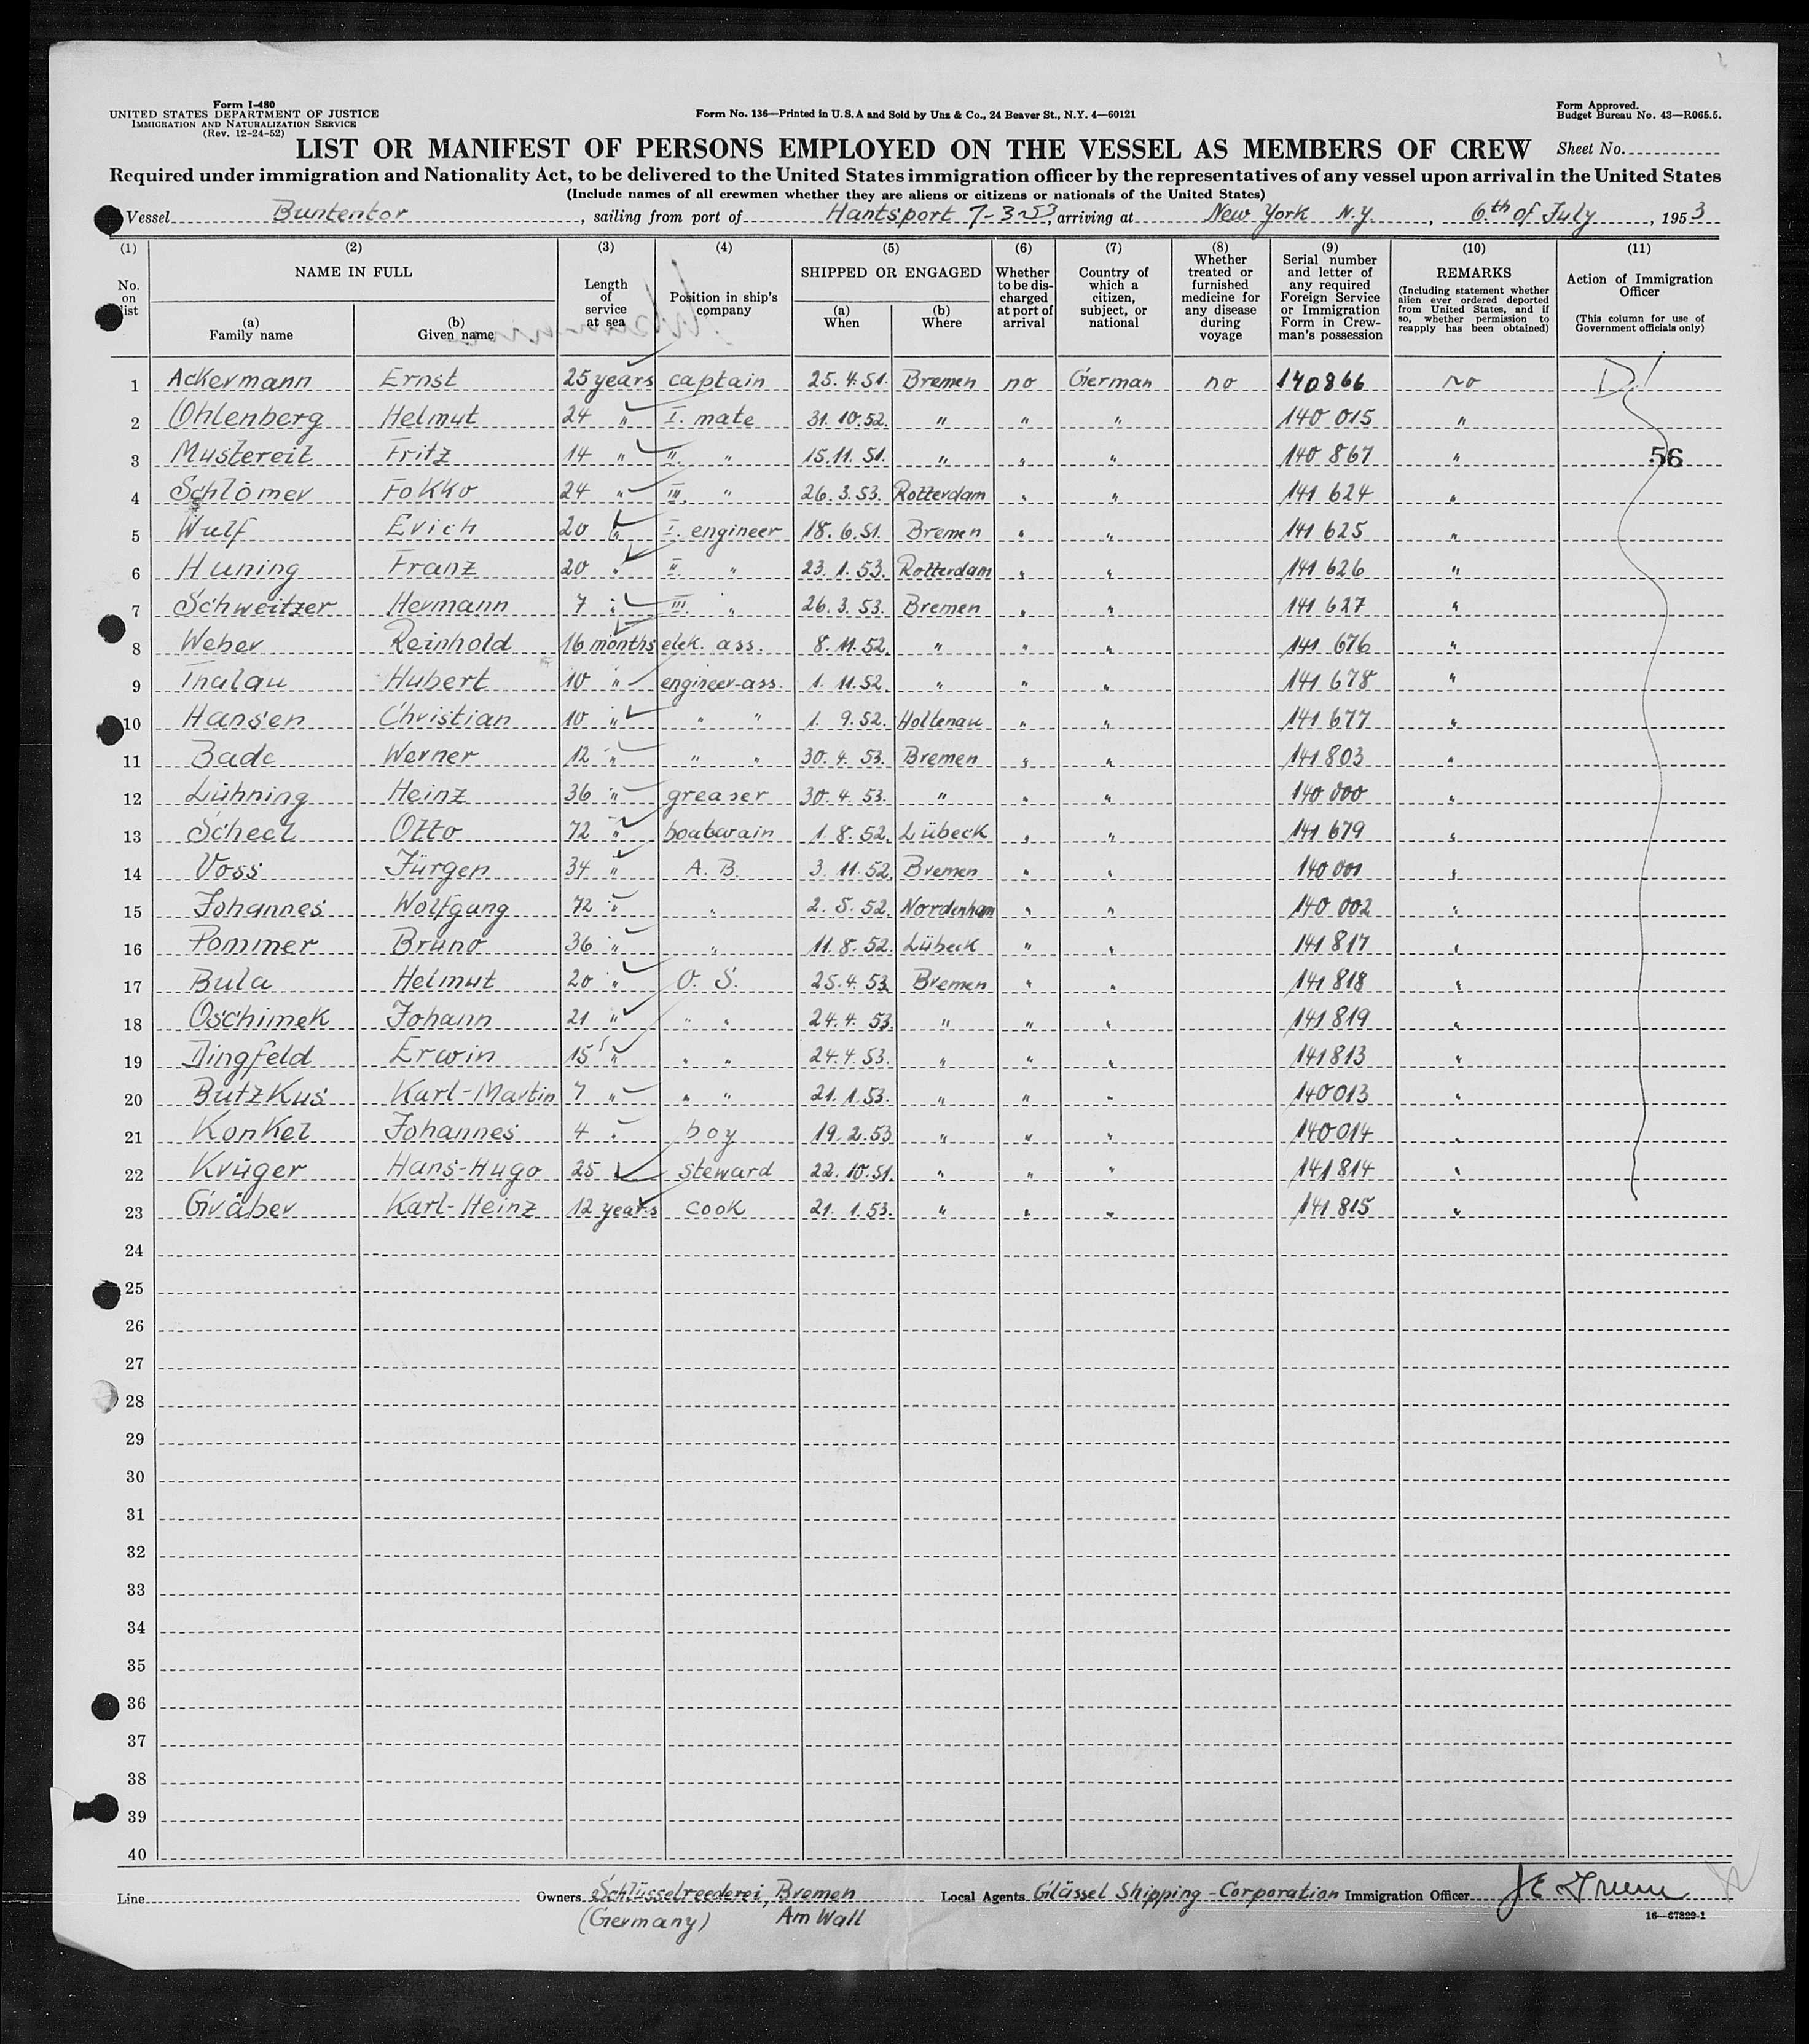 Form I-480
UNITED STATES DEPARTMENT OF JUSTICE
IMMIGRATION AND NATURALIZATION SERVICE
(Rev. 12-24-52)
Form No. 136—Printed in U.S.A and Sold by Unz & Co., 24 Beaver St., N.Y. 4—60121
Form Approved.
Budget Bureau No. 43—R065.5.
LIST OR MANIFEST OF PERSONS EMPLOYED ON THE VESSEL AS MEMBERS OF CREW Sheet No.
Required under immigration and Nationality Act, to be delivered to the United States immigration officer by the representatives of any vessel upon arrival in the United States
(Include names of all crewmen whether they are aliens or citizens or nationals of the United States)
Vessel Buntentor, sailing from port of Hantsport 7-3-53, arriving at New York N.Y., 6.th of July, 1953
(1) (2) (3) (4) (5) (6) (7) (8) (9) (10) (11)
No. on list
NAME IN FULL
(a) Family name
(b) Given name
Length of service at sea
Position in ship's company
SHIPPED OR ENGAGED
(a) When
(b) Where
Whether to be discharged at port of arrival
Country of which a citizen, subject, or national
Whether treated or furnished medicine for any disease during voyage
Serial number and letter of any required Foreign Service or Immigration Form in Crewman's possession
REMARKS
(Including statement whether alien ever ordered deported from United States, and if so, whether permission to reapply has been obtained)
Action of Immigration Officer
(This column for use of Government officials only)
1 Ackermann Ernst 25 years captain 25.4.51. Bremen no German no 140866 no
2 Ohlenberg Helmut 24 " I. mate 31.10.52. " " " 140 015 "
3 Mustereit Fritz 14 " II. " 15.11.51. " " " 140 867 " 56
4 Schlömer Fokko 24 " III. " 26.3.53. Rotterdam " " 141 624 "
5 Wulf Erich 20 " I. engineer 18.6.51. Bremen " " 141 625 "
6 Huning Franz 20 " II. " 23.1.53. Rotterdam " " 141 626 "
7 Schweitzer Hermann 7 " III. " 26.3.53. Bremen " " 141 627 "
8 Weber Reinhold 16 months elek. ass. 8.11.52. " " " 141 676 "
9 Thalau Hubert 10 " engineer-ass. 1.11.52. " " " 141 678 "
10 Hansen Christian 10 " " " 1.9.52. Holtenau " " 141 677 "
11 Bade Werner 12 " " " 30.4.53. Bremen " " 141 803 "
12 Lühning Heinz 36 " greaser 30.4.53. " " " 140 000 "
13 Scheel Otto 72 " boatswain 1.8.52. Lübeck " " 141 679 "
14 Voss Jürgen 34 " A.B. 3.11.52. Bremen " " 140 001 "
15 Johannes Wolfgang 72 " " 2.5.52. Nordenham " " 140 002 "
16 Pommer Bruno 36 " " 11.8.52. Lübeck " " 141 817 "
17 Bula Helmut 20 " O. S. 25.4.53. Bremen " " 141 818 "
18 Oschimek Johann 21 " " " 24.4.53. " " " 141 819 "
19 Dingfeld Erwin 15 " " " 24.4.53. " " " 141 813 "
20 Butzkus Karl-Martin 7 " " " 21.1.53. " " " 140 013 "
21 Konkel Johannes 4 " boy 19.2.53 " " " 140 014 "
22 Krüger Hans-Hugo 25 steward 22.10.51. " " " 141 814 "
23 Gräber Karl-Heinz 12 years cook 21.1.53. " " " 141 815 "
24
25
26
27
28
29
30
31
32
33
34
35
36
37
38
39
40
Line Owners Schlüsselreederei, Bremen Local Agents Glässel Shipping-Corporation Immigration Officer
(Germany) Am Wall
16—67829-1